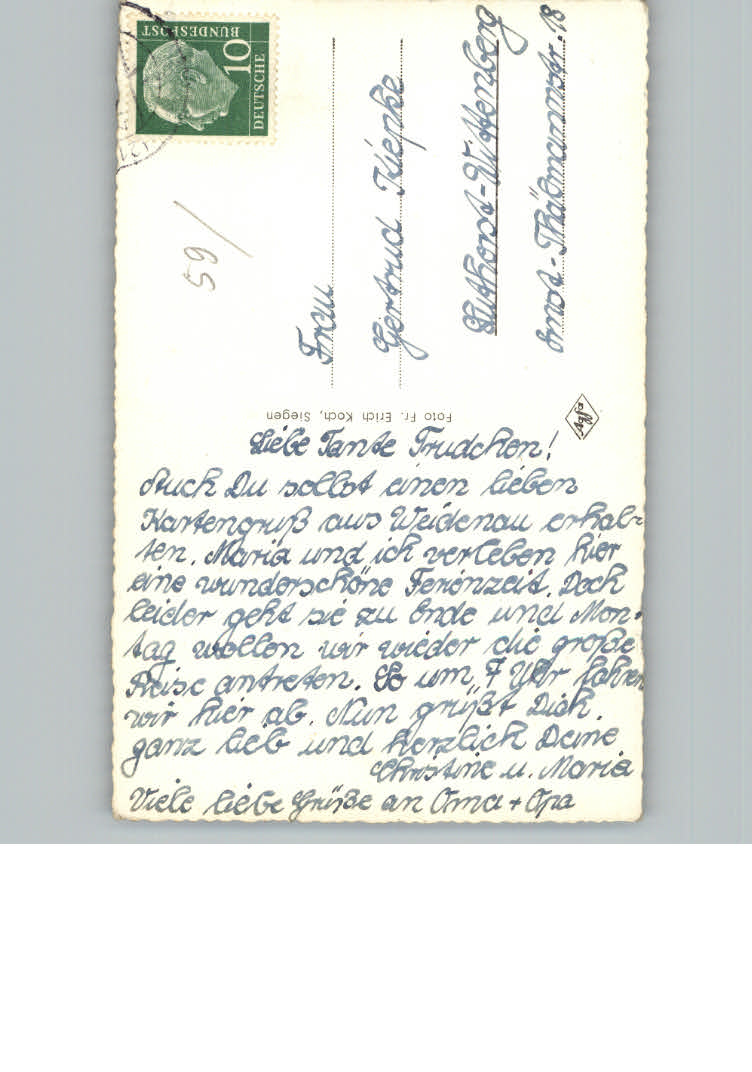 DEUTSCHE
BUNDESPOST
10
59/
Frau
Gertrud Kiepke
Lutherst-Wittenberg
Ernst-Thälmannstr. 18
Foto Fr. Erich Koch, Siegen
Agfa
Liebe Tante Trudchen!
Auch Du sollst einen lieben
Kartengruß aus Weidenau erhal-
ten. Maria und ich verleben hier
eine wunderschöne Ferienzeit. Doch
leider geht sie zu Ende und Mon-
tag wollen wir wieder die große
Reise antreten. So um 7 Uhr fahren
wir hier ab. Nun grüßt Dich
ganz lieb und herzlich Deine
Christine u. Maria
Viele liebe Grüße an Oma + Opa